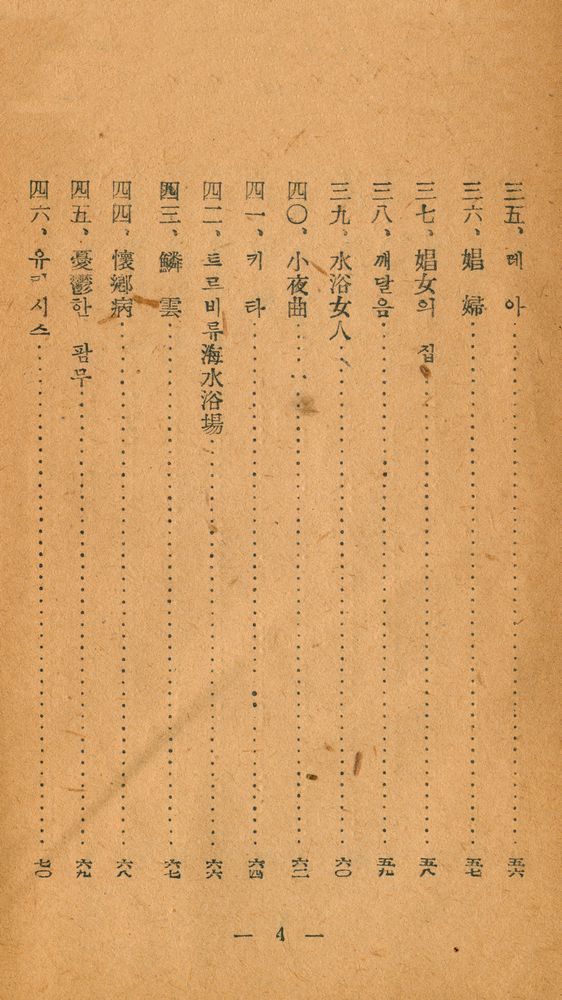 三五、레 아……五六
三六、娼 婦……五七
三七、娼女의 집……五八
三八、깨달음……五九
三九、水浴女人……六〇
四〇、小夜曲……六二
四一、키 타……六四
四二、트르비류海水浴場……六六
四三、鱗 雲……六七
四四、懷鄕病……六八
四五、憂鬱한 팜무……六九
四六、유 시스……七〇
— 4 —